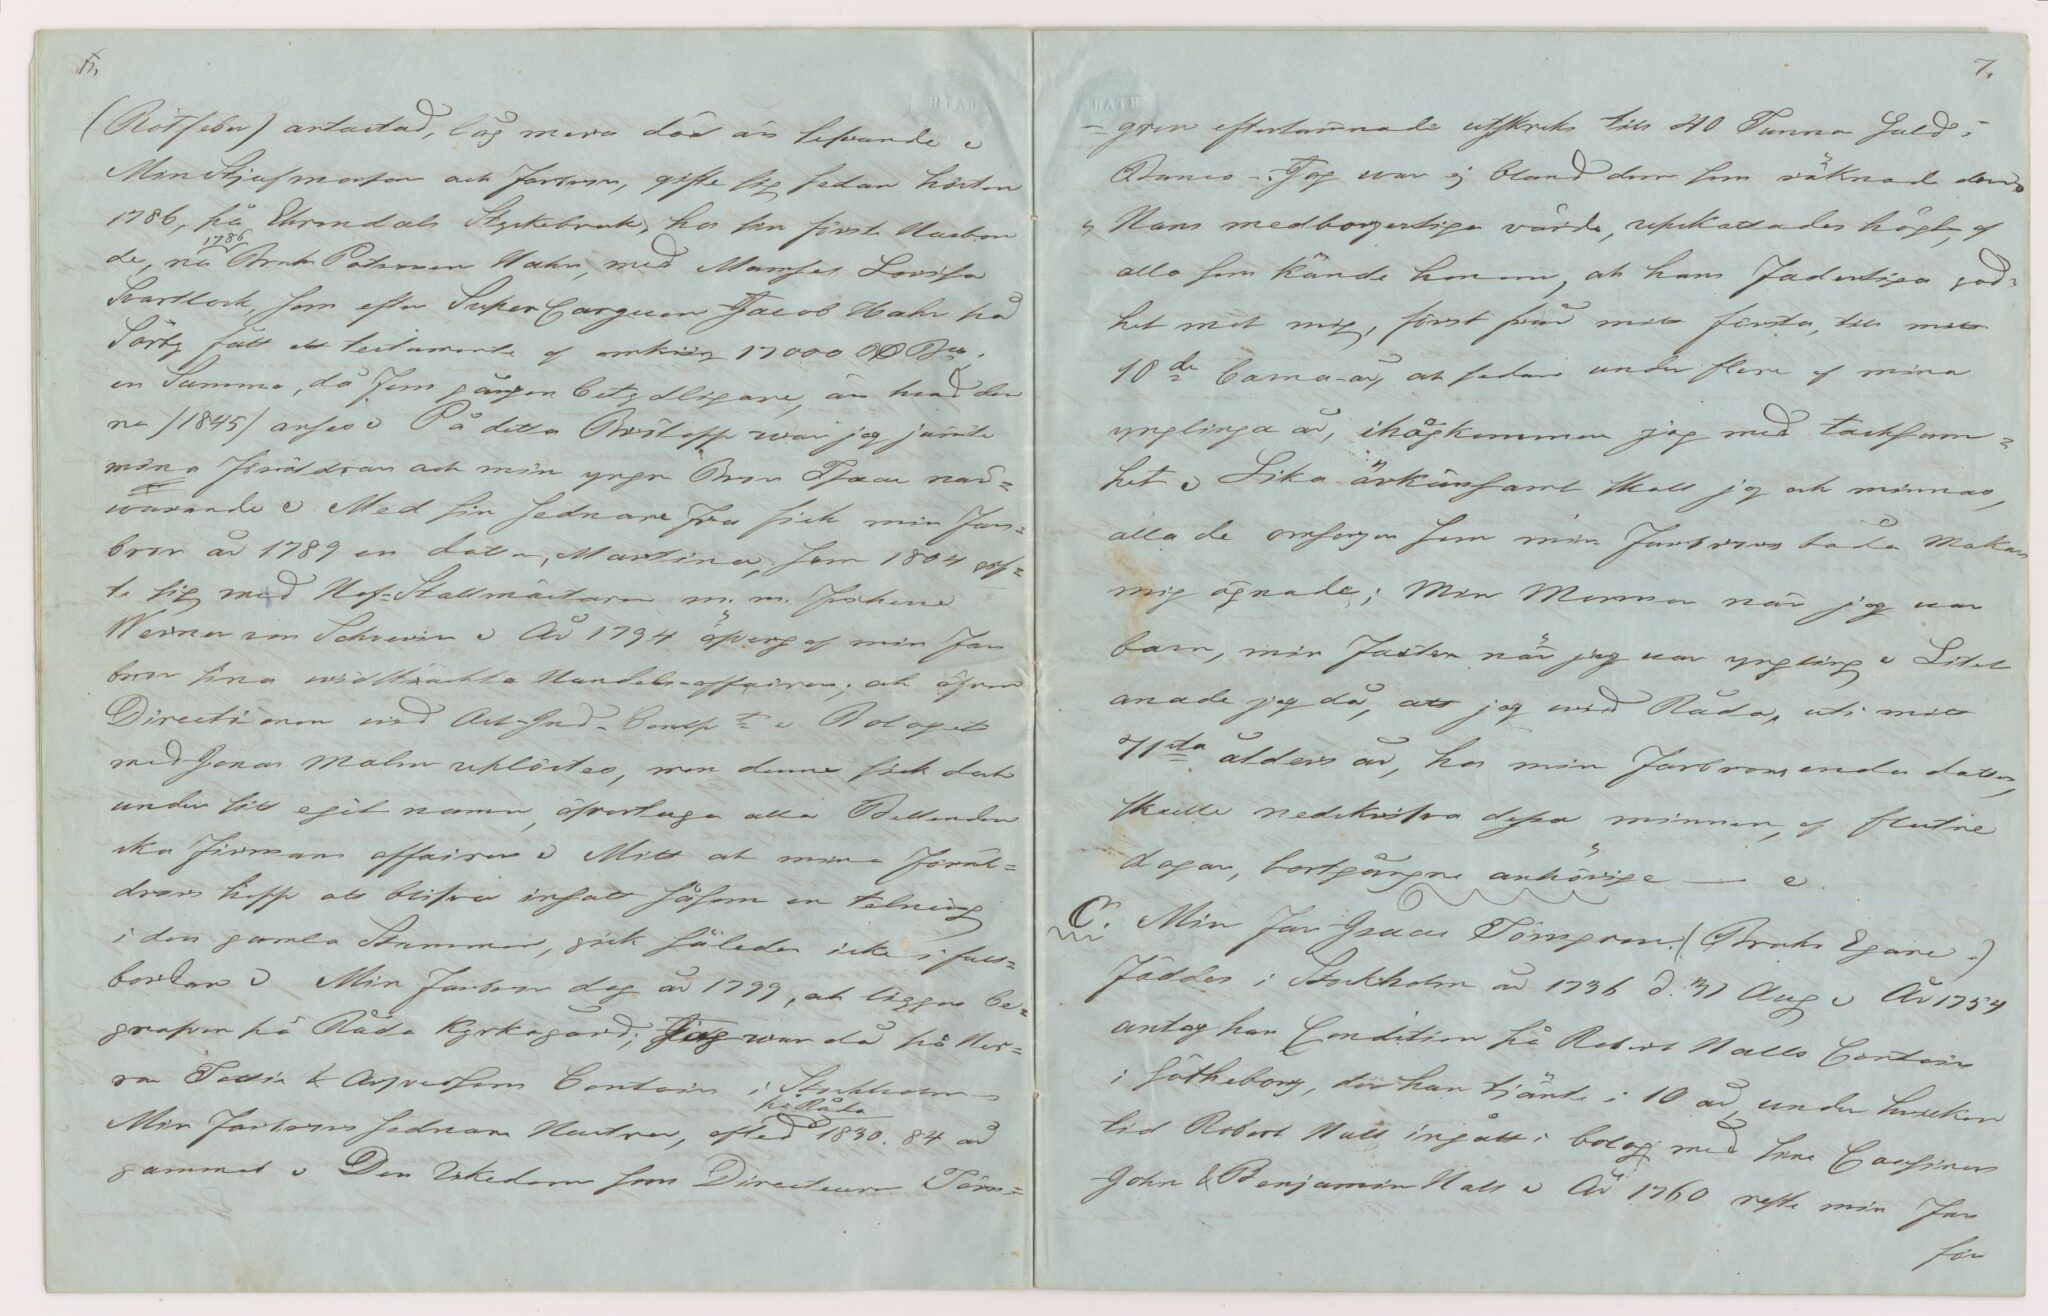 6.
(Rötfeber) antastad, låg mera död än lefvande
Min Stjufmorfar och Farbror, gifte sig sedan hösten
1786, på Ehrendals Styckebruk, hos sin första
de, nu Bruks Patronen Hahr, med Mamsell Lovisa
1786
Svartlock, som efter Super Carguen Jacob Hahr på
Särby fått ett testamente af omkring 17000 Rd Bco.
en Summa, då fem gånger betydligare, än hvad den
nu /1845/ anses På detta Bröllopp war jag jämte
mina föräldrar och min yngre Bror Isaac när=
warande Med sin sednare fru fick min Far=
bror år 1789 en dotter, Martina, som 1804 gif=
te sig med Hof-Stallmästaren m. m. friherre
Werner von Schwerin År 1794 öfvergaf min Far
bror sina widtsträckta Handels-affairer, och äfven
Directionen vid Ost-Ind-Comp Bolaget
med Jonas Malm uplöstes, men denne fick dock
under sitt eget namn, öfvertaga alla
ska firmans affairer Mitt och mina föräl=
drars hopp att blifva insatt såsom en telning
i den gamla Stammen, gick således icke i full=
bordan Min Farbror dog år 1799, och ligger be=
grafven på Råda Kyrkogård; Jag war då på Her=
rar Tottie & Arfvedsons Contoir i Stockholm
på Råda
Min Farbrors sednare Hustru, afled 1830. 84 år
gammal Den Rikedom som Directeuren Törn=
7.
=gren efterlämnade utskreks till 40 Tunna Guld i
Banco - Jag war ej bland dem som räknade dem
Hans medborgerliga värde, uppskattades högt, af
alla som kände honom, och hans faderliga god=
het mot mig, först från mitt första, till mitt
10de barna-år, och sedan under flere af mina
ynglinga år, ihågkommer jag med tacksam=
het Lika ärkänsamt skall jag och minnas,
alla de omsorger som min Farbrors båda Makar
mig ägnade; Min Mormor när jag var
barn, min Faster när jag var yngling Litet
anade jag då, att jag wid Råda, uti mitt
71sta ålders år, hos min Farbrors enda dotter,
skulle nedskrifva dessa minnen, af flutne
dagar, bortgångne anhörige
C. Min Far Isaac Törngren. (Bruks Egare.)
föddes i Stockholm år 1736 d. 31 Aug År 1754
antog han Condition på Robert Halls Contoir
i Götheborg, der han tjänte i 10 år, under hvilken
tid Robert Hall ingått i bolag med sine Cousiner
John & Benjamin Hall År 1760 reste min Far
för